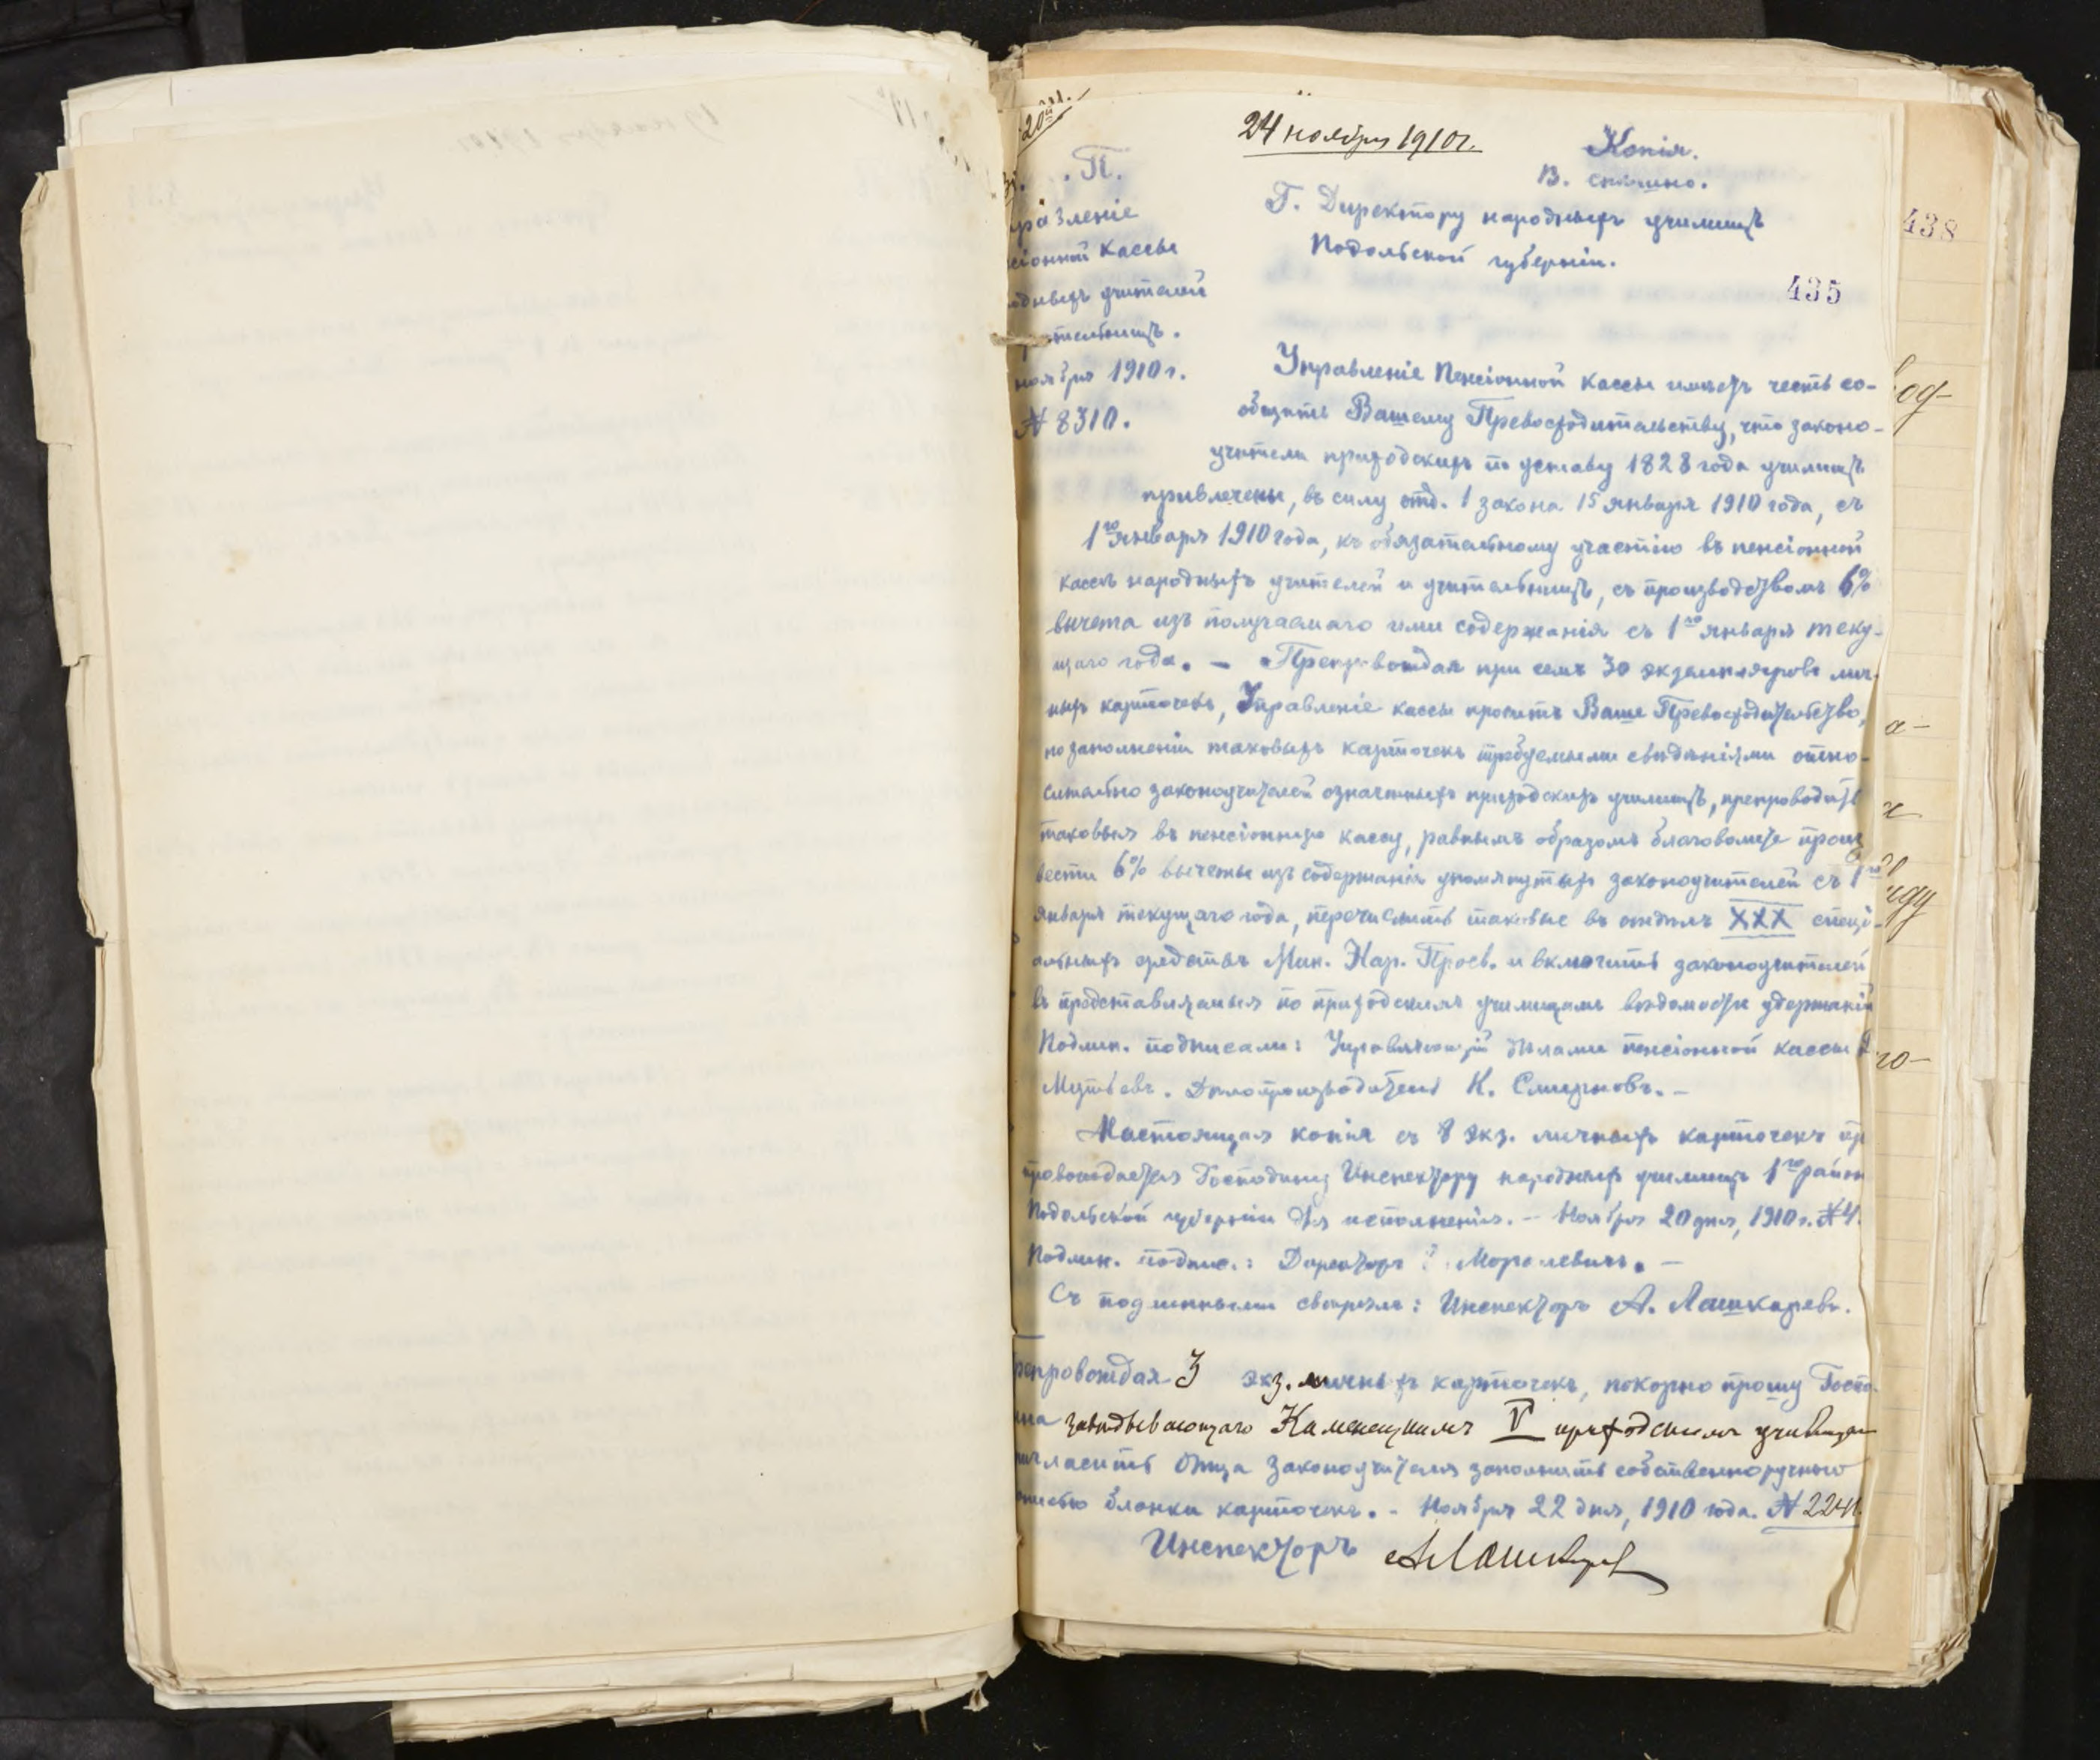 24 ноября 1910 г.
Копія.
В. спѣшно.
438
М. Н. П.
Г. Директору народныхъ училищъ
Подольской губерніи.
435
равленіе
сіонной кассы
одныхъ учителей
учительницъ.
ноября 1910 г.
№ 8310.
Управленіе Пенсіонной кассы имѣетъ честь со-
общить Вашему Превосходительству, что законо-
учители приходскихъ по уставу 1828 года училищъ
привлечены, въ силу отд. 1 закона 15 января 1910 года, съ
1го января 1910 года, къ обязательному участію въ пенсіонной
кассѣ народныхъ учителей и учительницъ, съ производствомъ 6%
вычета изъ получаемаго ими содержанія съ 1го января теку-
щаго года. — Препровождая при семъ 30 экземпляровъ лич-
ныхъ карточекъ, Управленіе кассы проситъ Ваше Превосходительство,
по заполненіи таковыхъ карточекъ требуемыми свѣдѣніями отно-
сительно законоучителей означенныхъ приходскихъ училищъ, препроводить
таковыя въ пенсіонную кассу, равнымъ образомъ благоволите произ
вести 6% вычеты изъ содержанія упомянутыхъ законоучителей съ 1го
января текущаго года, перечислить таковые въ отдѣлъ XXX спеці-
альныхъ средствъ Мин. Нар. Просв. и включить законоучителей
въ представляемыя по приходскимъ училищамъ вѣдомости удержаній
Подлин. подписали: Управляющій дѣлами пенсіонной кассы
Дѣлопроизводитель К. Смирновъ. —
Настоящая копія съ 8 экз. личныхъ карточекъ пр
провождается Господину Инспектору народныхъ училищъ 1го район
Подольской губерніи для исполненія. — Ноября 20 дня, 1910 г. №
Подлин. подпис.: Директоръ
Съ подлиннымъ свѣрялъ: Инспекторъ А. Лашкаревъ.
Препровождая 3 экз. личныхъ карточекъ, покорно прошу Госпо-
ина завѣдывающаго Каменецкимъ V приходскимъ училищемъ
пригласить Отца Законоучителя заполнить собственноручною
писью бланки карточекъ. - Ноября 22 дня, 1910 года. № 2241.
Инспекторъ АЛашкарев